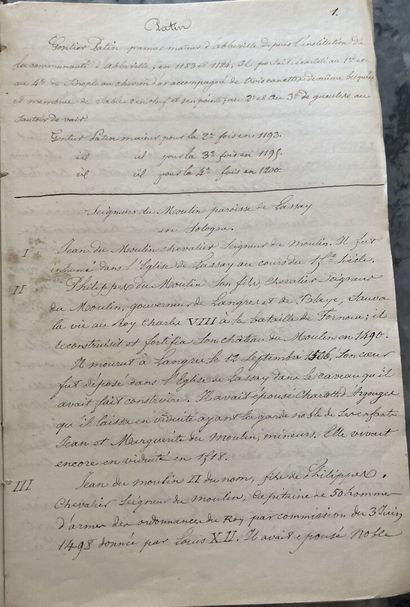 1.
Patin
Gontier Patin premier maieur d'abbeville depuis l'institution de
la communauté d'abbeville, en 1183 et 1184. Il portait écartelé au 1er et
au 4e de Sinople au chevron d'or accompagné de trois canettes de même becquées
et membrées de Sable
Sautoir de vair.
Gontier Patin maieur pour la 2e fois en 1193.
id id pour la 3e fois en 1195.
id id pour la 4e fois en 1200.
Seigneurs du Moulin paroisse de Lassay
en Sologne.
I Jean du Moulin chevalier Seigneur du Moulin. Il fut
inhumé dans l'Eglise de Lassay au cours du 15me Siècle.
II Philippe du Moulin Son fils, chevalier Seigneur
du Moulin, gouverneur de Langres et de Blaye, Sauva
la vie au Roy Charles VIII à la bataille de Fornoue; il
reconstruisit et fortifia Son château du Moulin en 1490.
Il mourut à Langres le 12 Septembre 1506, Son cœur
fut déposé dans l'Eglise de Lassay dans le caveau qu'il
avait fait construire. Il avait épousé Charlotte d'argouges
qu'il laissa en viduité ayant la garde noble de Ses enfants
Jean et Marguerite du Moulin, mineurs. Elle vivait
encore en viduité en 1518.
III Jean du moulin II du nom, fils de Philippe,
Chevalier Seigneur du moulin, Capitaine de 50 hommes
d'armes des ordonnances du Roy par commission du 3 Juin
1498 donnée par Louis XII. Il avait épousé Noble